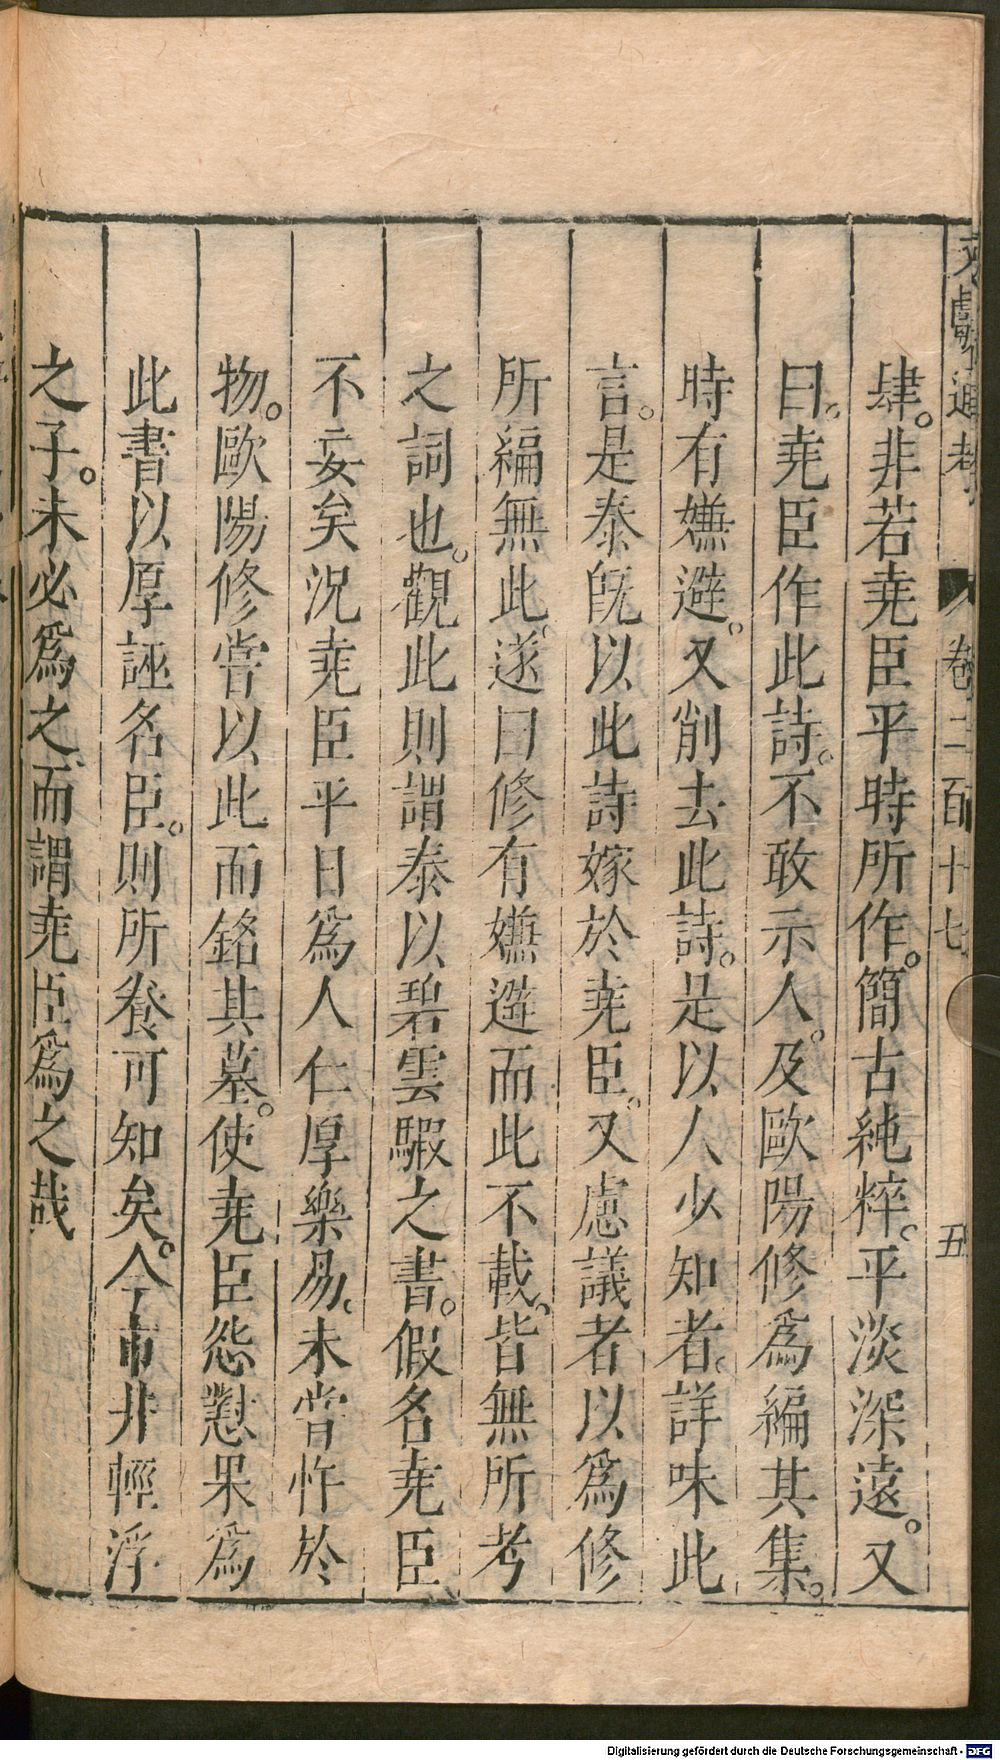 文獻通考 卷二百十七 五
肆。非若堯臣平時所作。簡古純粹。平淡深遠。又
曰。堯臣作此詩。不敢示人。及歐陽修爲編其集。
時有嫌避。又削去此詩。是以人少知者。詳味此
言。是泰旣以此詩嫁於堯臣。又慮議者以爲修
所編無此。遂曰修有嫌避而此不載。皆無所考
之詞也。觀此則謂泰以碧雲騢之書。假名堯臣
不妄矣況堯臣平日爲人仁厚樂易。未甞忤於
物。歐陽修甞以此而銘其墓。使堯臣怨懟果爲
此書以厚誣名臣。則所養可知矣。非輕浮
之子。未必爲之、而謂堯臣爲之哉
Digitalisierung gefördert durch die Deutsche Forschungsgemeinschaft - DFG